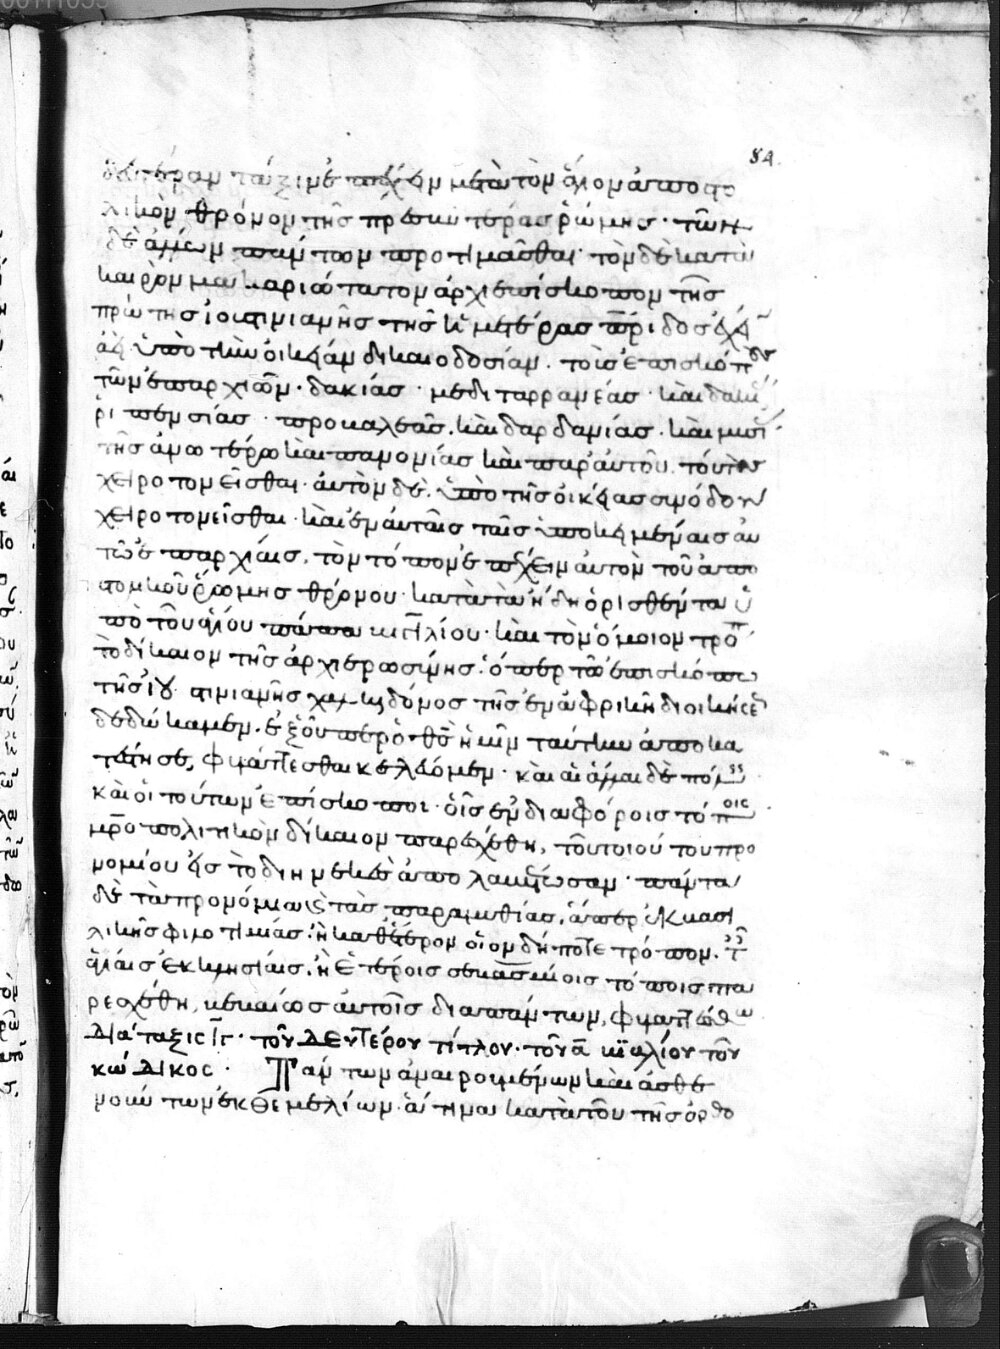 84.
δευτέραν τάξιν ἐπέχειν μετὰ τὸν ἅγιον ἀποστο
λικὸν θρόνον τῆς πρεσβυτέρας ῥώμης · τῶν
δὲ ἄλλων πάντων προτιμᾶσθαι · τὸν δὲ κατὰ
καιρὸν μακαριώτατον ἀρχιεπίσκοπον τῆς
πρώτης ἰουστινιανῆς τῆς ἡμετέρας πατρίδος ἔχειν
ἀεὶ ὑπὸ τὴν οἰκείαν δικαιοδοσίαν · τοὺς ἐπισκόπους
τῶν ἐπαρχιῶν · δακίας · μεδιταρρανέας · καὶ δακίας
ῥιπενσίας · πρεβαλέας · καὶ δαρδανίας · καὶ μυσίας
τῆς ἀνωτέρω καὶ παννονίας καὶ παρ' αὐτοῦ τούτους
χειροτονεῖσθαι · αὐτὸν δὲ ὑπὸ τῆς οἰκείας συνόδου
χειροτονεῖσθαι · καὶ ἐν αὐταῖς ταῖς ὑποκειμέναις αὐ
τῶ ἐπαρχίαις, τὸν τόπον ἐπέχειν αὐτὸν τοῦ ἀπο
στολικοῦ ῥώμης θρόνου · κατὰ τὰ ἤδη ὁρισθέντα ὑ
πὸ τοῦ ἁγίου πάπα βιγιλίου · καὶ τὸν ὅμοιον τρόπον
τὸ δίκαιον τῆς ἀρχιερωσύνης · ὅπερ τῶ ἐπισκόπω
τῆς ἰουστινιανῆς χαλκηδόνος τῆς ἐν ἀφρικῆ διοικήσεως
δεδώκαμεν · ἐξ οὗ περ ὁ θεὸς ἡμῖν ταύτην ἀποκα
τέστησε, φυλάττεσθαι κελεύομεν · καὶ αἱ ἄλλαι δὲ πόλεις
καὶ οἱ τούτων ἐπίσκοποι · οἷς ἐν διαφόροις τόποις
μητροπολιτικὸν δίκαιον παρεσχέθη, τοῦ τοιούτου προ
νομίου εἰς τὸ διηνεκὲς ἀπολαυέτωσαν · πάντα
δὲ τὰ προνόμια καὶ τὰς παραμυθίας, ἅπερ ἐκ βασι
λικῆς φιλοτιμίας · ἢ καθ' ἕτερον οἷον δήποτε τρόπον · ταῖς
ἁγίαις ἐκκλησίαις · ἢ ἑτέροις σεβασμίοις τόποις πα
ρεσχέθη, βεβαίως αὐτοῖς διαπάντων, φυλαττέσθω
Διάταξις ιγ · τοῦ Δευτέρου τίτλου · τοῦ α βιβλίου τοῦ
κώΔικος · Πάντων ἀναιρουμένων καὶ ἀσθε
νούντων ἐκ θεμελίων ἅτινα κατὰ τοῦ τῆς ὀρθο